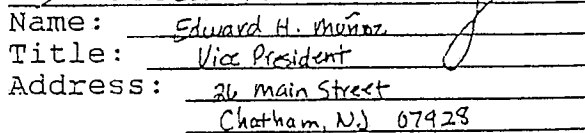 Name: Edward H. Muñoz
Title: Vice President
Address: 26 Main Street
Chatham, NJ 07928